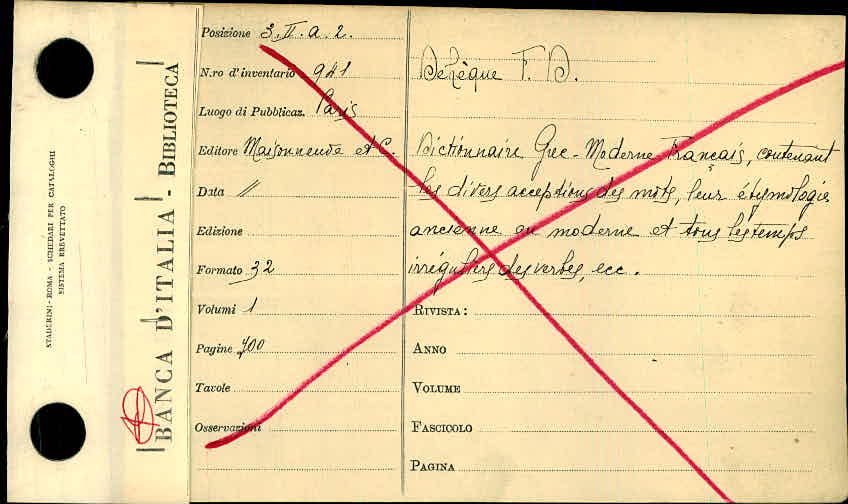 STADERINI - ROMA - SCHEDARI PER CATALOGHI
SISTEMA BREVETTATO
BANCA D'ITALIA - BIBLIOTECA
Posizione 3. II. a. 2.
N.ro d'inventario 941
Luogo di Pubblicaz. Paris
Editore Maisonneuve et C.
Data //
Edizione
Formato 32
Volumi 1
Pagine 700
Tavole
Osservazioni
Dézèque F. D.
Dictionnaire Grec-Moderne Français, contenant
les divers acceptions des mots, leur étymologie
ancienne ou moderne et tous les temps
irréguliers des verbes, ecc.
RIVISTA:
ANNO
VOLUME
FASCICOLO
PAGINA